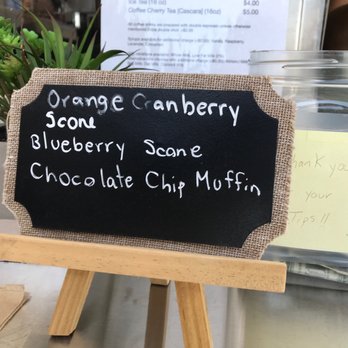 Ice Tea (16 oz) $4.00
Coffee Cherry Tea [Cascara] (16oz) $5.00
Orange Cranberry
Scone
Blueberry Scone
Chocolate Chip Muffin
Thank you
your
Tips!!